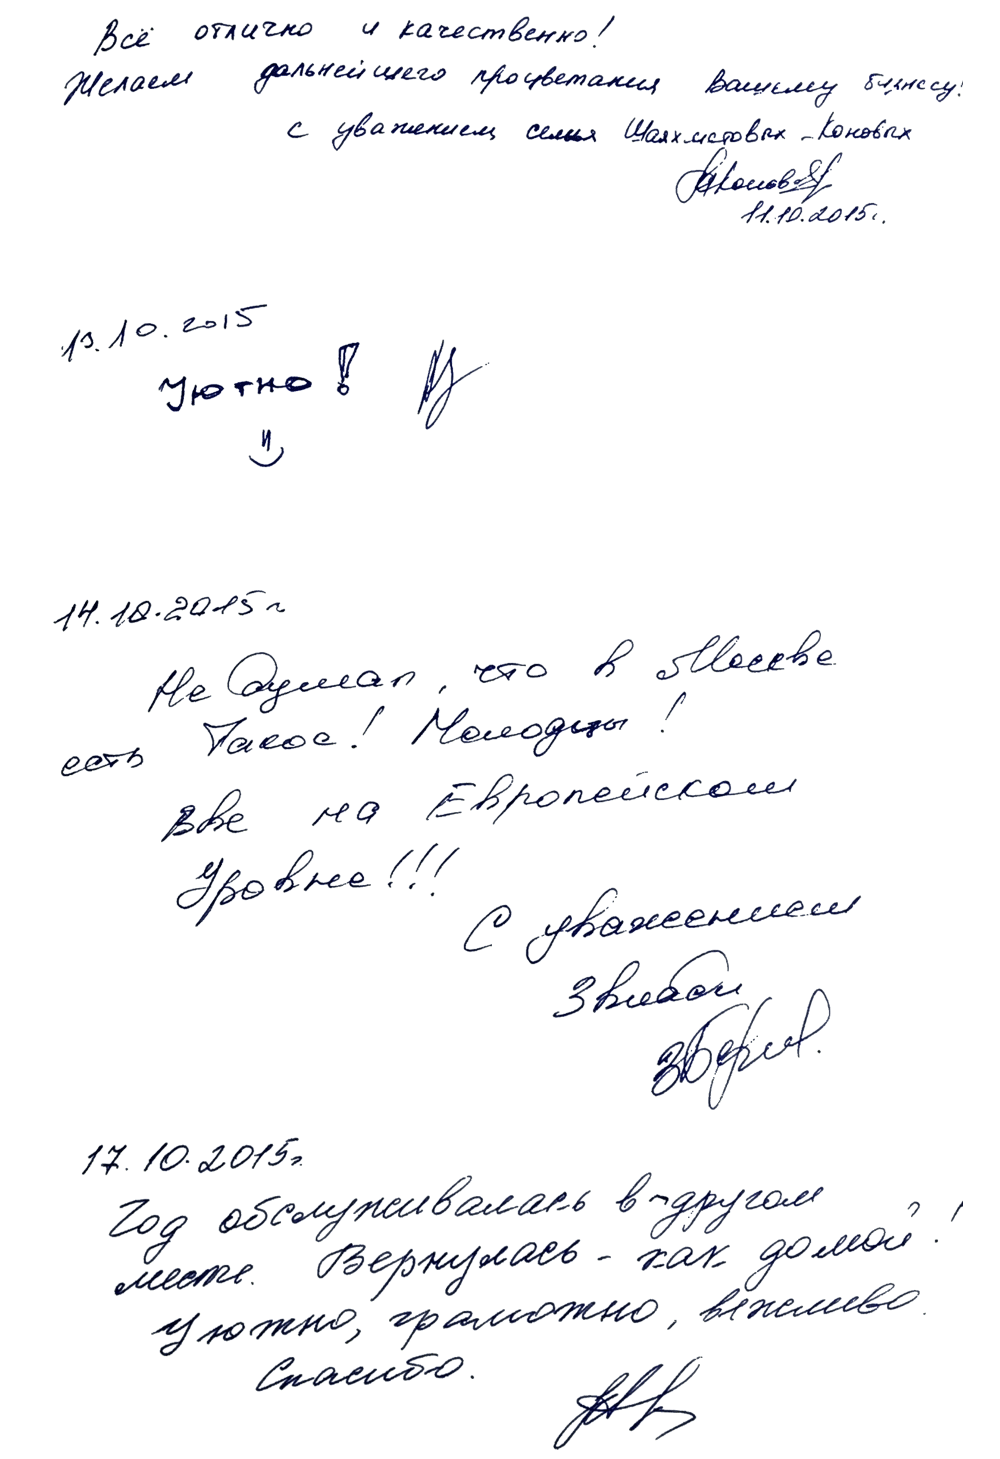 Всё отлично и качественно!
Желаем дальнейшего процветания Вашему бизнесу!
с уважением семья Шаяхметовых - Коновых
11.10.2015г.
13.10.2015
Уютно!
14.10.2015г
Не думал, что в Москве
есть такое! Молодцы!
Все на Европейском
уровне!!!
С уважением
17.10.2015г.
Год обслуживалась в другом
месте. Вернулась - как домой!
Уютно, грамотно, вежливо.
Спасибо.